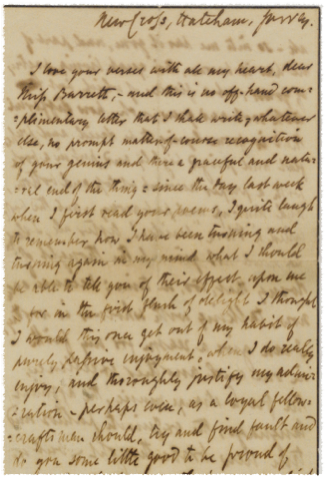 New Cross, Hatcham, Surrey.
I love your verses with all my heart, dear
Miss Barrett,- and this is no off-hand com-
-plimentary letter that I shall write,-whatever
else, no prompt matter-of-course recognition
of your genius and there a graceful and natu-
-ral end of the thing: since the day last week
when I first read your poems, I quite laugh
to remember how I have been turning and
turning again in my mind what I should
be able to tell you of their effect upon me
for in the first flush of delight I thought
I would this once get out of my habit of
purely passive enjoyment, when I do really
enjoy, and thoroughly justify my admi-
-ration - perhaps even, as a loyal fellow-
-craftsman should, try and find fault and
do you some little good to be proud of